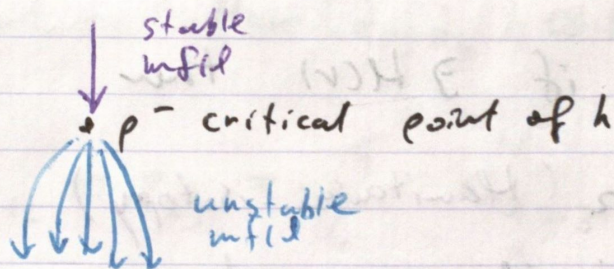 stable
mfld
p - critical point of h
unstable
mfld